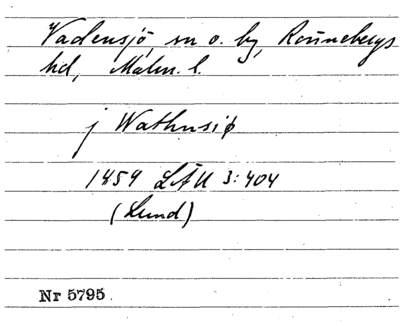 Vadensjö, sn o. by, Rönnebergs
hd, Malm. l.
j Wathnsiø
1454 LÄU 3:404
(Lund)
Nr 5795